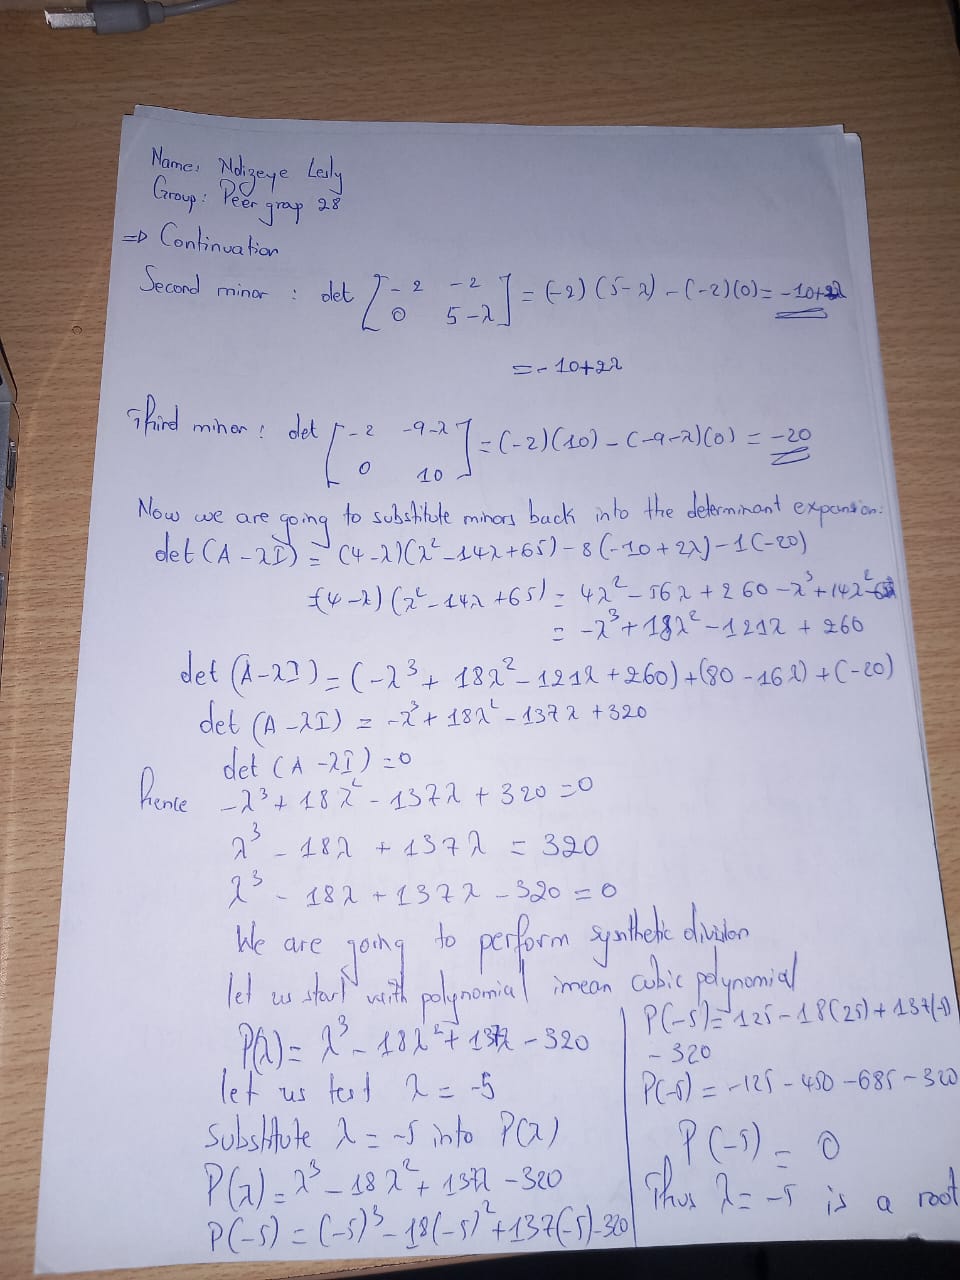 Name: Ndizeye Lesly
Group: Peer group 28
=> Continuation
Second minor : det [-2 -2; 0 5-λ] = (-2)(5-λ) - (-2)(0) = -10+2λ
= -10+2λ
Third minor : det [-2 -9-λ; 0 10] = (-2)(10) - (-9-λ)(0) = -20
Now we are going to substitute minors back into the determinant expansion:
det (A-λI) = (4-λ)(λ²-14λ+65) - 8(-10+2λ) - 1(-20)
(4-λ)(λ²-14λ+65) = 4λ²-56λ+260-λ³+14λ²
= -λ³+18λ²-121λ+260
det (A-λI) = (-λ³+18λ²-121λ+260)+(80-16λ)+(-20)
det (A-λI) = -λ³+18λ²-137λ+320
det (A-λI) = 0
hence -λ³+18λ²-137λ+320=0
λ³ - 18λ + 137λ = 320
λ³ - 18λ + 137λ - 320 = 0
We are going to perform synthetic division
let us start with polynomial imean cubic polynomial
P(λ) = λ³ - 18λ² + 137λ - 320
let us test λ = -5
Substitute λ = -5 into P(λ)
P(λ) = λ³ - 18λ² + 137λ - 320
P(-5) = (-5)³ - 18(-5)² + 137(-5) - 320
P(-5) = 125 - 18(25) + 137(-5)
- 320
P(-5) = -125 - 450 - 685 - 320
P(-5) = 0
Thus λ = -5 is a root